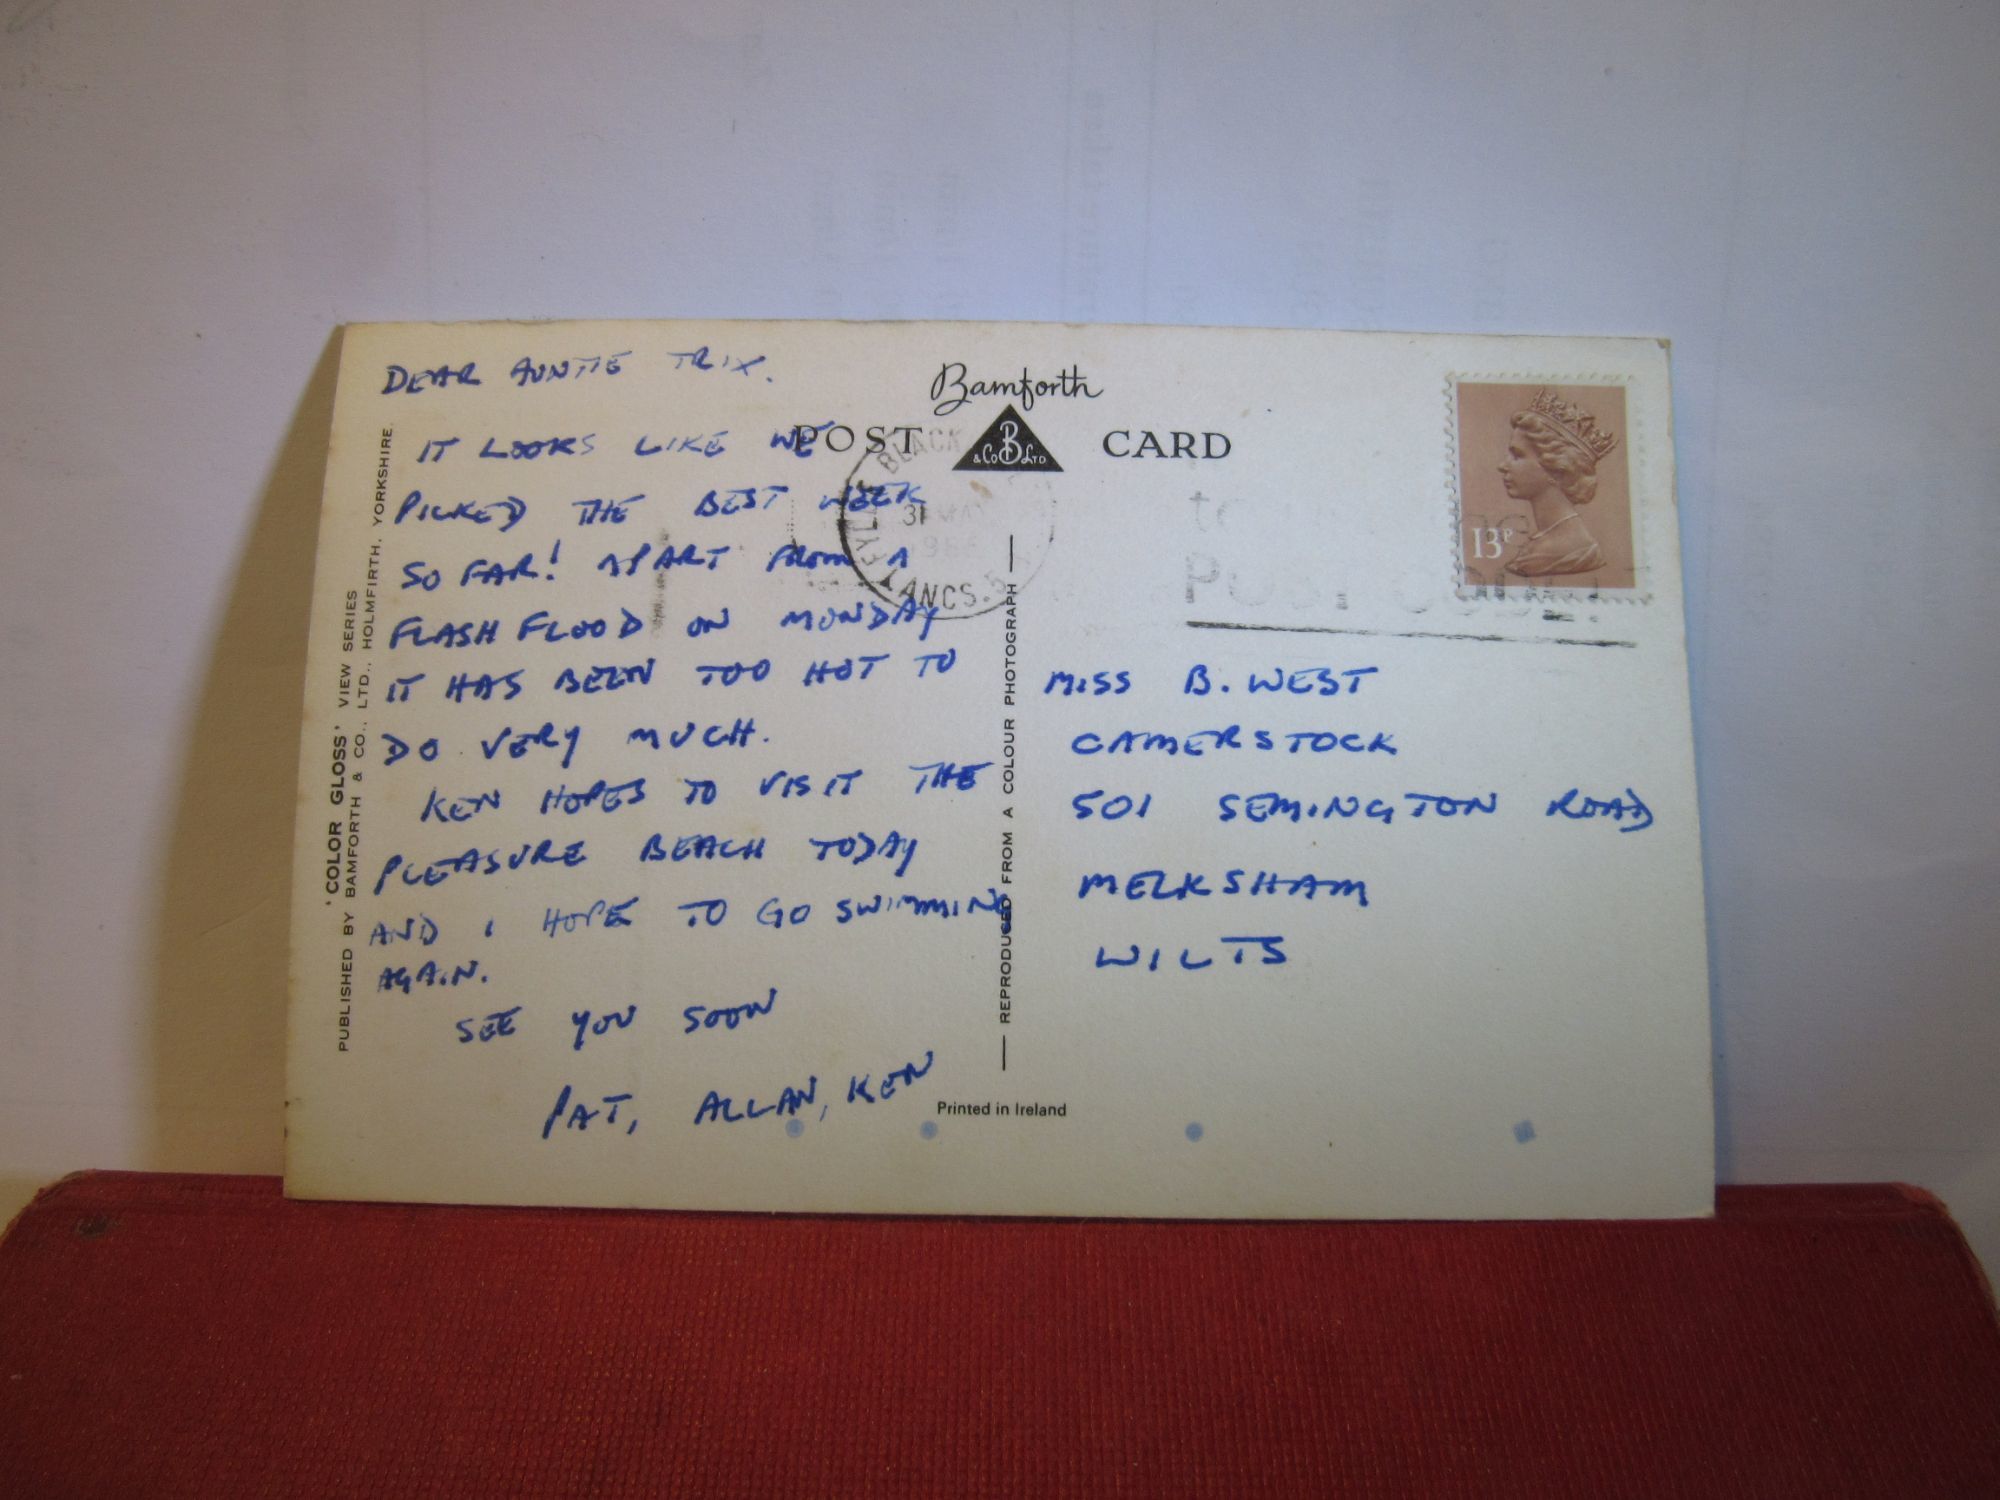 DEAR AUNTIE TRIX.
IT LOOKS LIKE WE
PICKED THE BEST WEEK
SO FAR! APART FROM A
FLASH FLOOD ON MONDAY
IT HAS BEEN TOO HOT TO
DO VERY MUCH.
KEN HOPES TO VISIT THE
PLEASURE BEACH TODAY
AND I HOPE TO GO SWIMMING
AGAIN.
SEE YOU SOON
PAT, ALLAN, KEN
'COLOR GLOSS' VIEW SERIES
PUBLISHED BY BAMFORTH & CO., LTD., HOLMFIRTH, YORKSHIRE.
Bamforth
POST CARD
B
& Co LTD
BLACK
FYLDE
31 MAY
LANCS.
REPRODUCED FROM A COLOUR PHOTOGRAPH
Printed in Ireland
13P
MISS B. WEST
CAMERSTOCK
501 SEMINGTON ROAD
MELKSHAM
WILTS